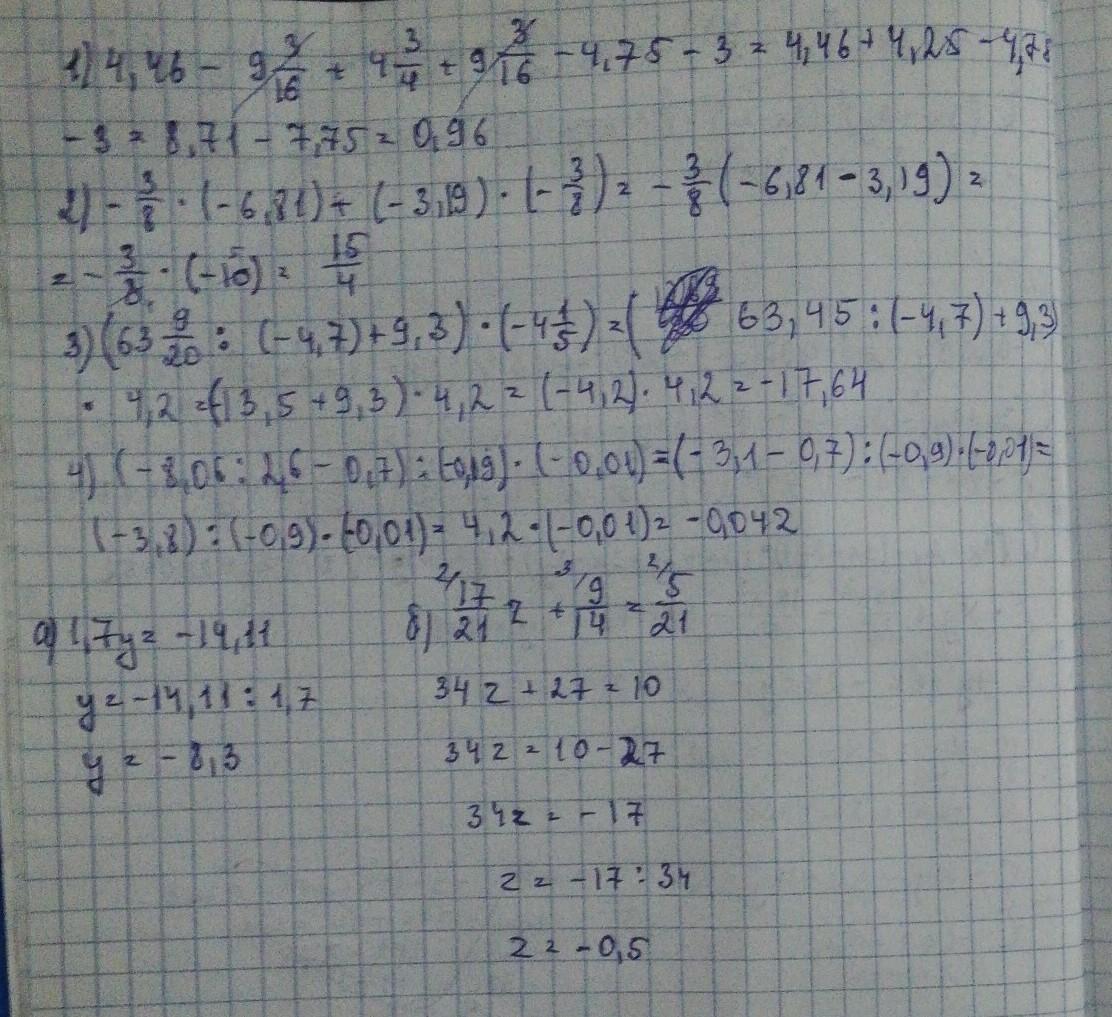 1) 4,46 - 9 3/16 + 4 3/4 + 9 3/16 - 4,75 - 3 = 4,46 + 4,25 - 4,75
- 3 = 8,71 - 7,75 = 0,96
2) - 3/8 · (-6,81) + (-3,19) · (- 3/8) = - 3/8 (-6,81 - 3,19) =
= - 3/8 · (-10) = 15/4
3) (63 9/20 : (-4,7) + 9,3) · (-4 1/5) = ( 63,45 : (-4,7) + 9,3)
· 4,2 = (-13,5 + 9,3) · 4,2 = (-4,2) · 4,2 = -17,64
4) (-8,06 : 2,6 - 0,7) : (-0,9) · (-0,01) = (-3,1 - 0,7) : (-0,9) · (-0,01) =
(-3,8) : (-0,9) · (-0,01) = 4,2 · (-0,01) = -0,042
а) 1,7y = -14,11
y = -14,11 : 1,7
y = -8,3
б) 2/ 17/21 z + 3/ 9/14 = 2/ 5/21
34z + 27 = 10
34z = 10 - 27
34z = -17
z = -17 : 34
z = -0,5